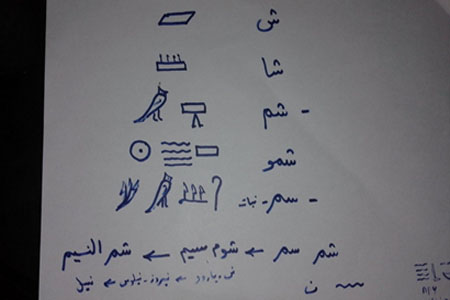 ش
شا
- شم
شمو
- سم - نبات
شم سم ← شوم سيم ← شم النسيم
نيل ←
ن